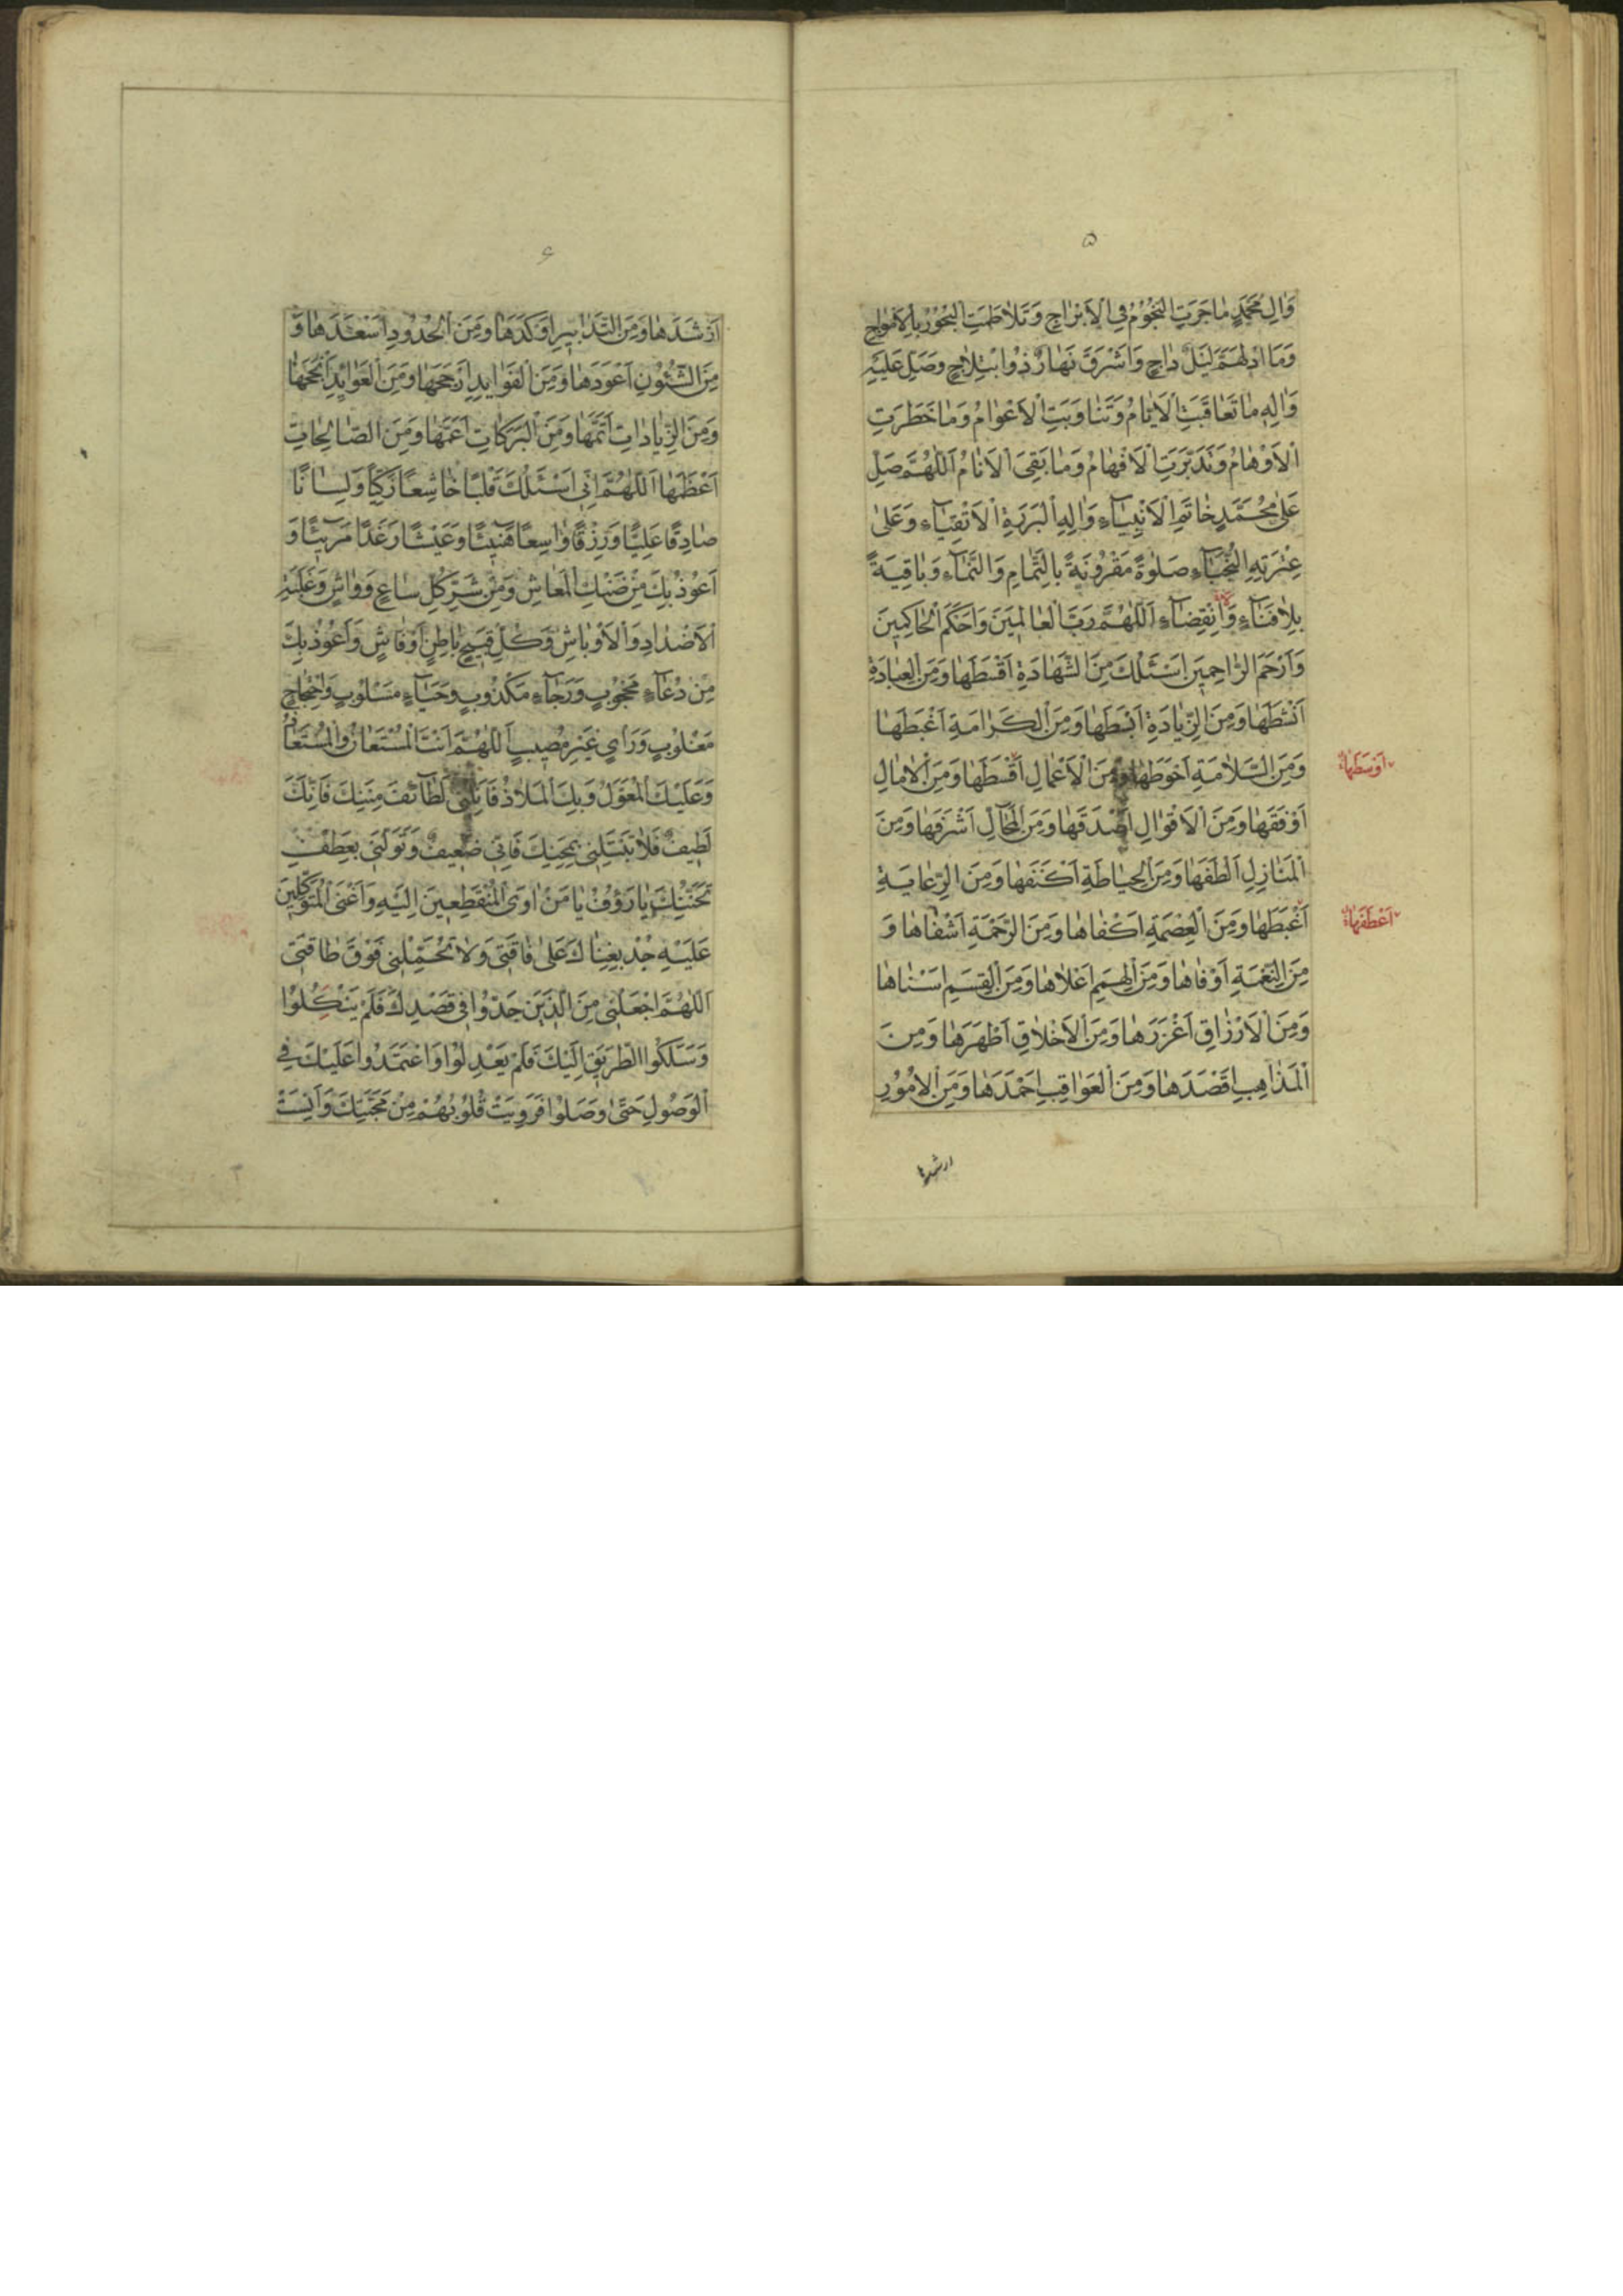 ۵
وَالِ مُحَمَّدٍ مٰا جَرَتِ النُّجُوْمُ فِی الْاَبْرٰاجِ وَتَلٰاطَمَتِ الْبُحُوْرُ بِالْاَمْوٰاجِ
وَمَا ادْلَهَمَّ لَيْلٌ دٰاجٍ وَاَشْرَقَ نَهٰارٌ ذُوا بْتِلٰاجٍ وَصَلِّ عَلَيْهِ
وَاٰلِهِ مٰا تَعٰاقَبَتِ الْاَيّٰامُ وَتَنٰاوَبَتِ الْاَعْوٰامُ وَمٰا خَطَرَتِ
الْاَوْهٰامُ وَتَدَبَّرَتِ الْاَفْهٰامُ وَمٰا بَقِیَ الْاَنٰامُ اَللّٰهُمَّ صَلِّ
عَلٰی مُحَمَّدٍ خٰاتَمِ الْاَنْبِيٰآءِ وَاٰلِهِ الْبَرَرَةِ الْاَتْقِيٰآءِ وَعَلٰی
عِتْرَتِهِ النُّجَبٰآءِ صَلٰوةً مَقْرُوْنَةً بِالتَّمٰامِ وَالنَّمٰآءِ وَبٰاقِيَةً
بِلٰا فَنٰآءٍ وَانْقِضٰآءٍ اَللّٰهُمَّ رَبَّ الْعٰالَمِيْنَ وَاَحْكَمَ الْحٰاكِمِيْنَ
وَاَرْحَمَ الرّٰاحِمِيْنَ اَسْئَلُكَ مِنَ الشَّهٰادَةِ اَقْسَطَهٰا وَمِنَ الْعِبٰادَةِ
اَنْشَطَهٰا وَمِنَ الزِّيٰادَةِ اَبْسَطَهٰا وَمِنَ الْكَرٰامَةِ اَغْبَطَهٰا
وَمِنَ السَّلٰامَةِ اَحْوَطَهٰا وَمِنَ الْاَعْمٰالِ اَقْسَطَهٰا وَمِنَ الْاٰمٰالِ
اَوْسَطَهٰا
اَوْفَقَهٰا وَمِنَ الْاَقْوٰالِ اَصْدَقَهٰا وَمِنَ الْمَحٰآلِّ اَشْرَفَهٰا وَمِنَ
الْمَنٰازِلِ اَلْطَفَهٰا وَمِنَ الْحِيٰاطَةِ اَكْنَفَهٰا وَمِنَ الرِّعٰايَةِ
اَغْبَطَهٰا وَمِنَ الْعِصْمَةِ اَكْفٰاهٰا وَمِنَ الرَّحْمَةِ اَشْفٰاهٰا وَ
اَعْطَفَهٰا
مِنَ النِّعْمَةِ اَوْفٰاهٰا وَمِنَ الْهِمَمِ اَعْلٰاهٰا وَمِنَ الْقِسَمِ اَسْنٰاهٰا
وَمِنَ الْاَرْزٰاقِ اَغْزَرَهٰا وَمِنَ الْاَخْلٰاقِ اَطْهَرَهٰا وَمِنَ
الْمَذٰاهِبِ اَقْصَدَهٰا وَمِنَ الْعَوٰاقِبِ اَحْمَدَهٰا وَمِنَ الْاُمُوْرِ
ارشدها
۶
اَرْشَدَهٰا وَمِنَ التَّدٰابِيْرِ اَوْكَدَهٰا وَمِنَ الْحُدُوْدِ اَسْعَدَهٰا وَ
مِنَ الشُّئُوْنِ اَعْوَدَهٰا وَمِنَ الْفَوٰايِدِ اَرْجَحَهٰا وَمِنَ الْعَوٰايِدِ اَنْجَحَهٰا
وَمِنَ الزِّيٰادٰاتِ اَتَمَّهٰا وَمِنَ الْبَرَكٰاتِ اَعَمَّهٰا وَمِنَ الصّٰالِحٰاتِ
اَعْظَمَهٰا اَللّٰهُمَّ اِنّی اَسْئَلُكَ قَلْبًا خٰاشِعًا زَكِيًّا وَلِسٰانًا
صٰادِقًا عَلِيًّا وَرِزْقًا وٰاسِعًا هَنِيْئًا وَعَيْشًا رَغَدًا مَرِيْئًا وَ
اَعُوْذُ بِكَ مِنْ ضَنْكِ الْمَعٰاشِ وَمِنْ شَرِّ كُلِّ سٰاعٍ وَوٰاشٍ وَغَلَبَةِ
الْاَضْدٰادِ وَالْاَوْبٰاشِ وَكُلِّ قَبِيْحٍ بٰاطِنٍ اَوْ فٰاشٍ وَاَعُوْذُ بِكَ
مِنْ دُعٰآءٍ مَحْجُوْبٍ وَرَجٰآءٍ مَكْذُوْبٍ وَحَيٰآءٍ مَسْلُوْبٍ وَاحْتِجٰاجٍ
مَغْلُوْبٍ وَرَأیٍ غَيْرِ مُصِيْبٍ اَللّٰهُمَّ اَنْتَ الْمُسْتَعٰانُ وَالْمُسْتَعٰاذُ
وَعَلَيْكَ الْمُعَوَّلُ وَبِكَ الْمَلٰاذُ فَاَنِلْنی لَطٰآئِفَ مِنَنِكَ فَاِنَّكَ
لَطِيْفٌ فَلٰا تَبْتَلِنی بِمِحَنِكَ فَاِنّی ضَعِيْفٌ وَتَوَلَّنی بِعَطْفِ
تَحَنُّنِكَ يٰا رَؤُفُ يٰا مَنْ اٰوَی الْمُنْقَطِعِيْنَ اِلَيْهِ وَاَغْنَی الْمُتَوَكِّلِيْنَ
عَلَيْهِ جُدْ بِغِنٰاكَ عَلٰی فٰاقَتی وَلٰا تُحَمِّلْنی فَوْقَ طٰاقَتی
اَللّٰهُمَّ اجْعَلْنی مِنَ الَّذِيْنَ جَدُّوْا فی قَصْدِكَ فَلَمْ يَنْكُلُوْا
وَسَلَكُوا الطَّرِيْقَ اِلَيْكَ فَلَمْ يَعْدِلُوْا وَاعْتَمَدُوْا عَلَيْكَ فِی
الْوُصُوْلِ حَتّٰی وَصَلُوْا فَرَوِيَتْ قُلُوْبُهُمْ مِنْ مَحَبَّتِكَ وَاَنِسَتْ